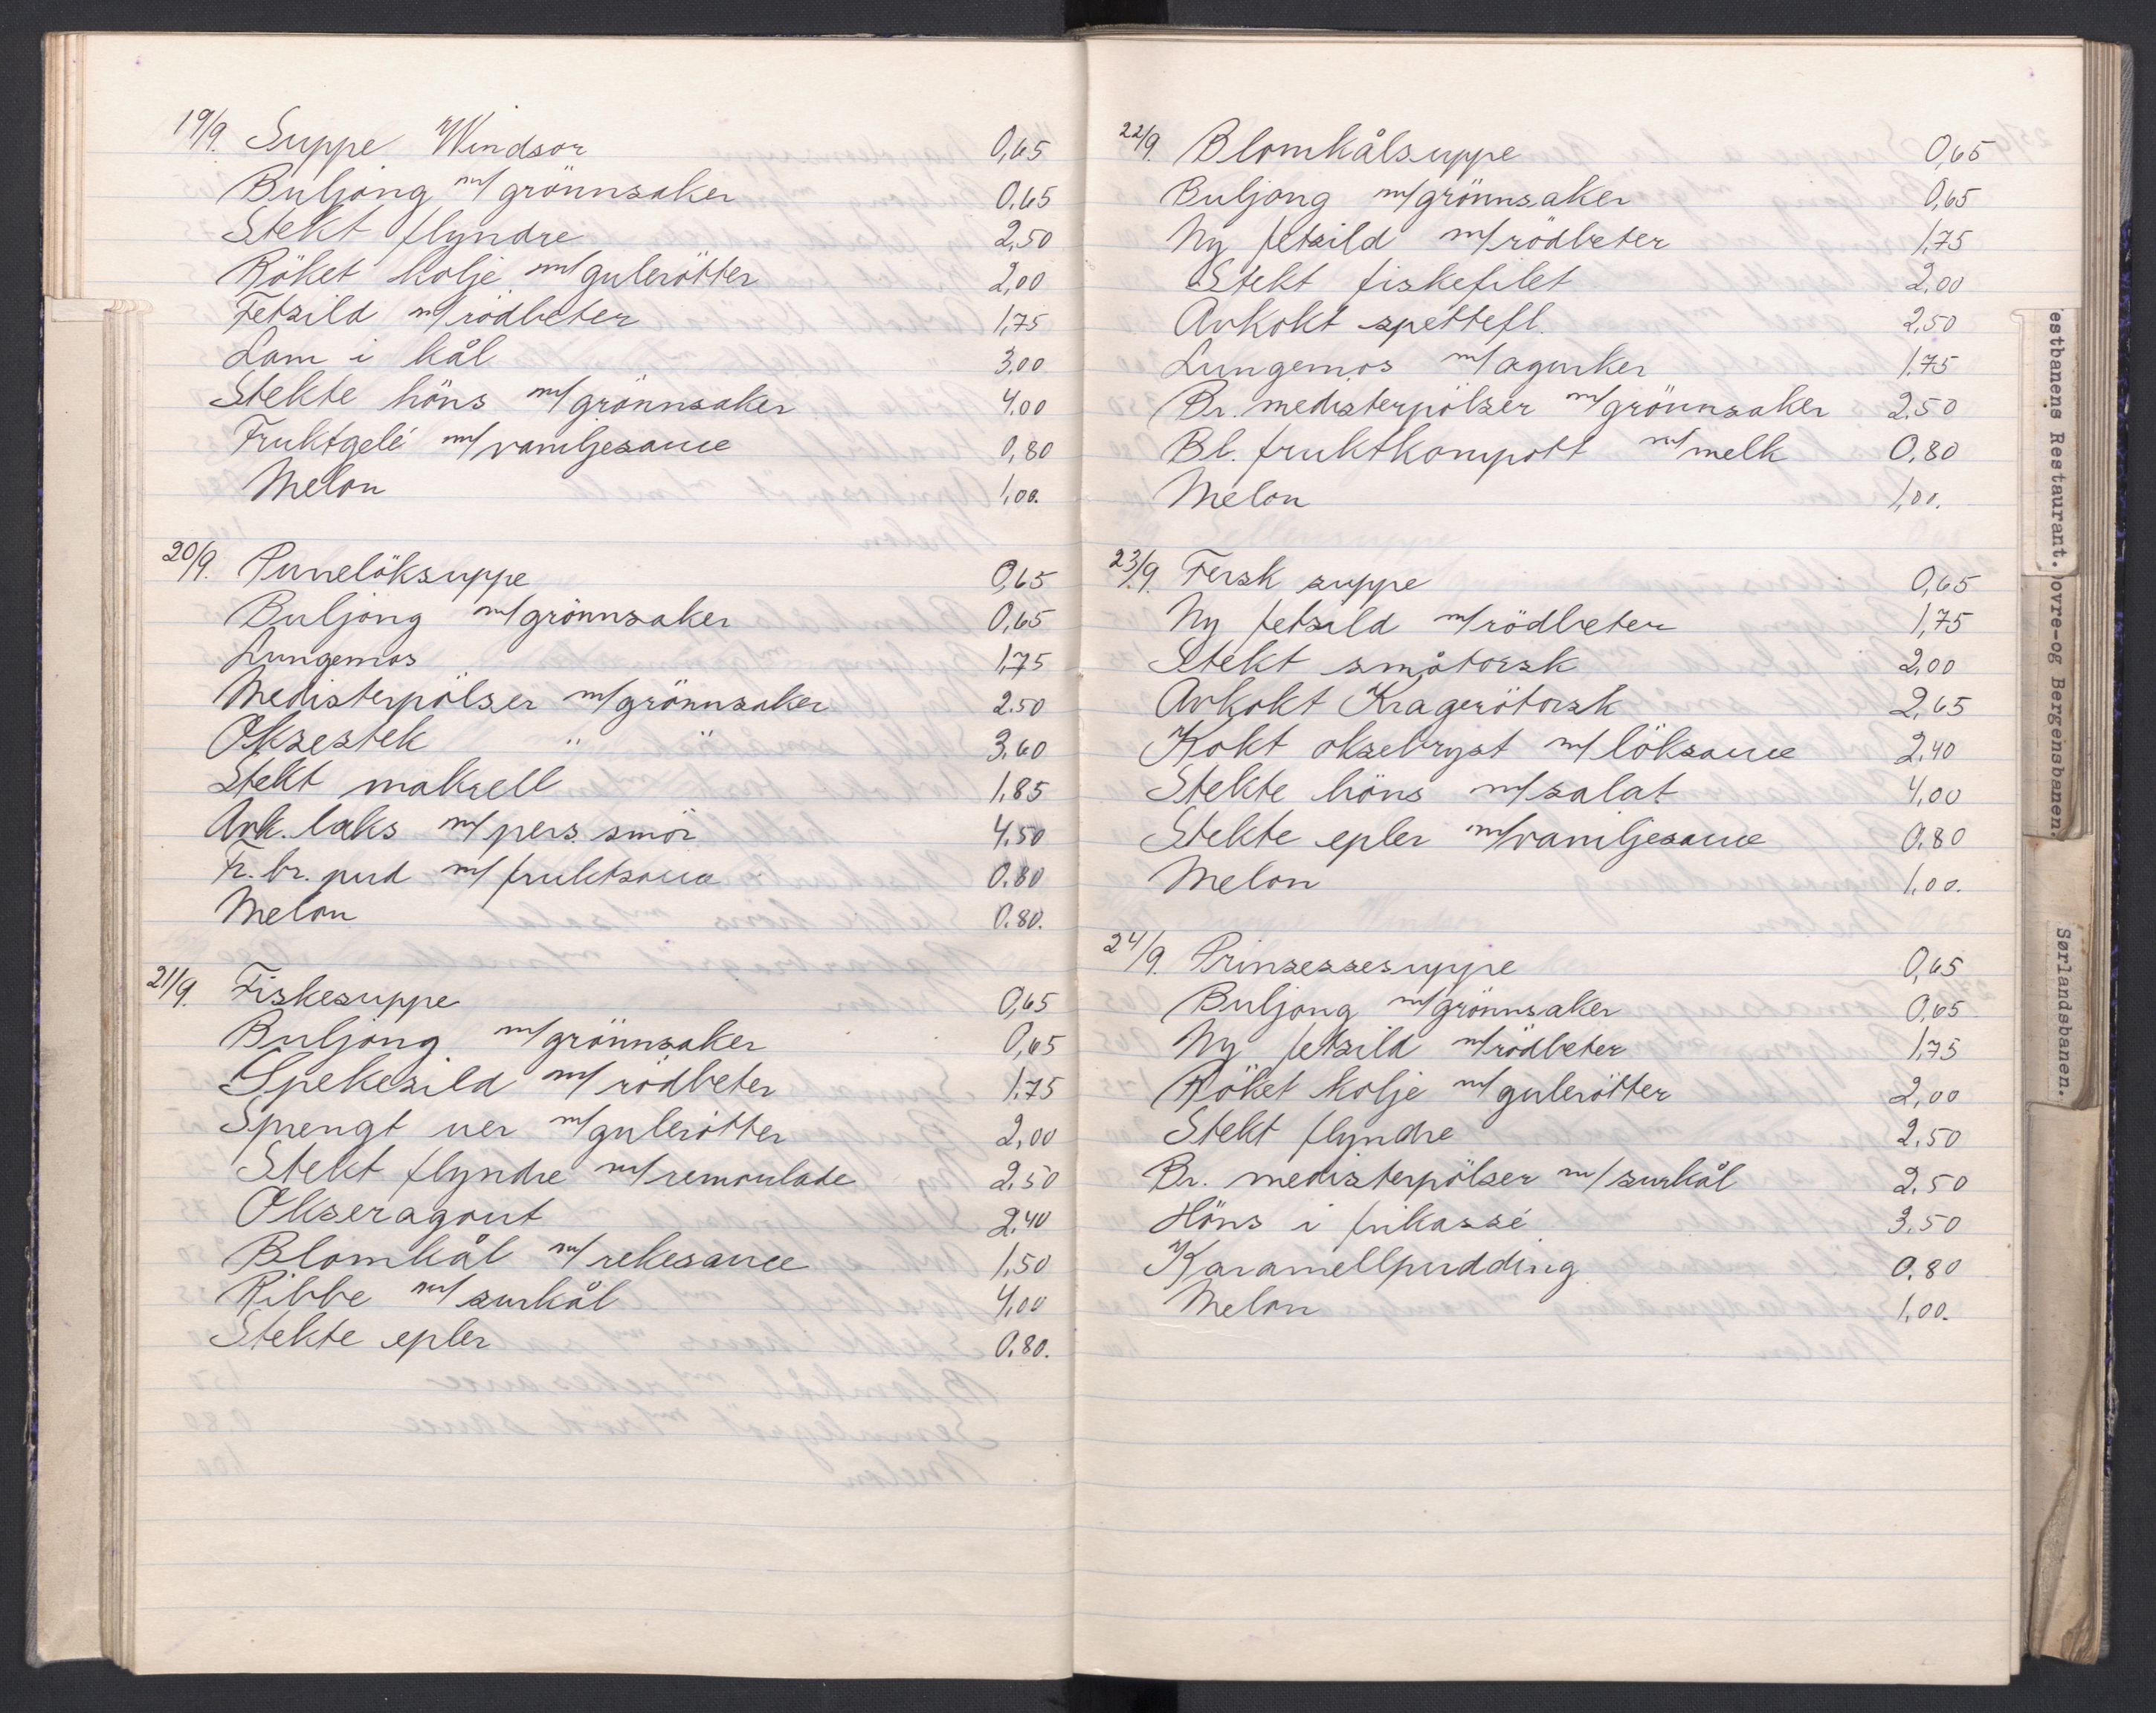 19/9. Suppe Windsor 0,65
Buljong m/grönnsaker 0,65
Stekt flyndre 2,50
Röket kolje m/gulerötter 2,00
Fetsild m/rödbeter 1,75
Lam i kål 3,00
Stekte höns m/grönnsaker 4,00
Fruktgelé m/vaniljesauce 0,80
Melon 1,00.
20/9. Purrelöksuppe 0,65
Buljong m/grönnsaker 0,65
Lungemos 1,75
Medisterpölser m/grönnsaker 2.50
Oksestek " " 3,60
Stekt makrell 1,85
Avk. laks m/pers. smör 4,50
Fr. br. pud m/fruktsauce 0.80
Melon 0.80.
21/9. Fiskesuppe 0,65
Buljong m/grönnsaker 0,65
Spekesild m/rödbeter 1.75
Sprengt uer m/gulerötter 2,00
Stekt flyndre m/remoulade 2,50
Okseragout 2,40
Blomkål m/rekesauce 1,50
Ribbe m/surkål 4,00
Stekte epler 0.80.
22/9. Blomkålsuppe 0,65
Buljong m/grönnsaker 0,65
Ny fetsild m/rödbeter 1,75
Stekt fiskefilet 2,00
Avkokt spettefl. 2,50
Lungemos m/agurker 1.75
Br. medisterpölser m/grönnsaker 2.50
Bl. fruktkompott m/melk 0,80
Melon 1,00.
23/9. Fersk suppe 0,65
Ny fetsild m/rödbeter 1,75
Stekt småtorsk 2,00
Avkokt Kragerötorsk 2,65
Kokt oksebryst m/löksauce 2,40
Stekte höns m/salat 4,00
Stekte epler m/vaniljesauce 0.80
Melon 1,00.
24/9. Prinsessesuppe 0,65
Buljong m/grönnsaker 0,65
Ny fetsild m/rödbeter 1,75
Röket kolje m/gulerötter 2,00
Stekt flyndre 2,50
Br. medisterpölser m/surkål 2.50
Höns i frikassé 3.50
Karamellpudding 0.80
Melon 1,00.
estbanens Restaurant.
ovre-og Bergensbanen.
Sørlandsbanen.